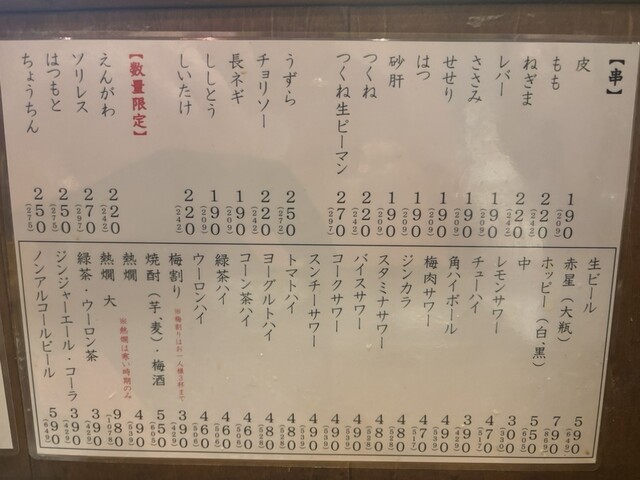 【串】
皮 190 (209)
もも 220 (242)
ねぎま 220 (242)
レバー 190 (209)
ささみ 190 (209)
せせり 190 (209)
はつ 190 (209)
砂肝 190 (209)
つくね 220 (242)
つくね生ピーマン 270 (297)
うずら 250 (275)
チョリソー 220 (242)
長ネギ 190 (209)
ししとう 190 (209)
しいたけ 220 (242)
【数量限定】
えんがわ 220 (242)
ソリレス 270 (297)
はつもと 250 (275)
ちょうちん 250 (275)
生ビール 590 (649)
赤星（大瓶） 790 (869)
ホッピー（白、黒） 550 (605)
中 300 (330)
レモンサワー 470 (517)
チューハイ 390 (429)
角ハイボール 490 (539)
梅肉サワー 470 (517)
ジンカラ 480 (528)
スタミナサワー 480 (528)
バイスサワー 490 (539)
コークサワー 490 (539)
スンチーサワー 490 (539)
トマトハイ 480 (528)
ヨーグルトハイ 480 (528)
コーン茶ハイ 460 (506)
緑茶ハイ 460 (506)
ウーロンハイ 460 (506)
梅割り 390 (429)
※梅割りはお一人様3杯まで
焼酎（芋、麦）・梅酒 550 (605)
熱燗 490 (539)
※熱燗は寒い時期のみ
熱燗 大 980 (1078)
緑茶・ウーロン茶 390 (429)
ジンジャーエール・コーラ 390 (429)
ノンアルコールビール 590 (649)